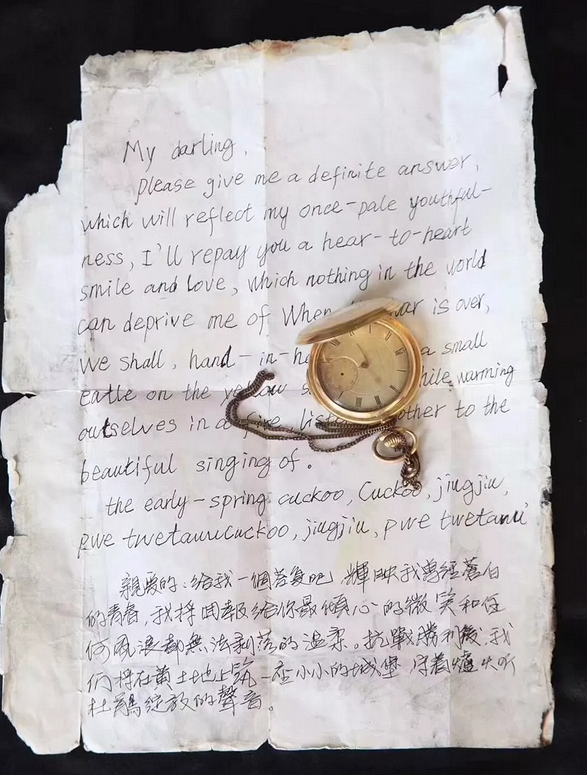 My darling,
please give me a definite answer,
which will reflect my once-pale youthful-
ness, I'll repay you a hear-to-heart
smile and love, which nothing in the world
can deprive me of When is over,
We shall, hand-in- a small
eatle on the yellow while warming
outselves in a fire, other to the
beautiful singing of.
the early-spring cuckoo, Cuckoo, jiugjiu,
pwe twetauucuckoo, jiugjiu, pwe twetauu
親爱的:给我一個荅复吧 輝映我曾經蒼白
的青春,我将回報给你最傾心的微笑和任
何風浪都無法剥落的温柔。抗戰勝利後,我
们将在黄土地上筑一座小小的城堡 守着爐火听
杜鹃绽放的聲音。